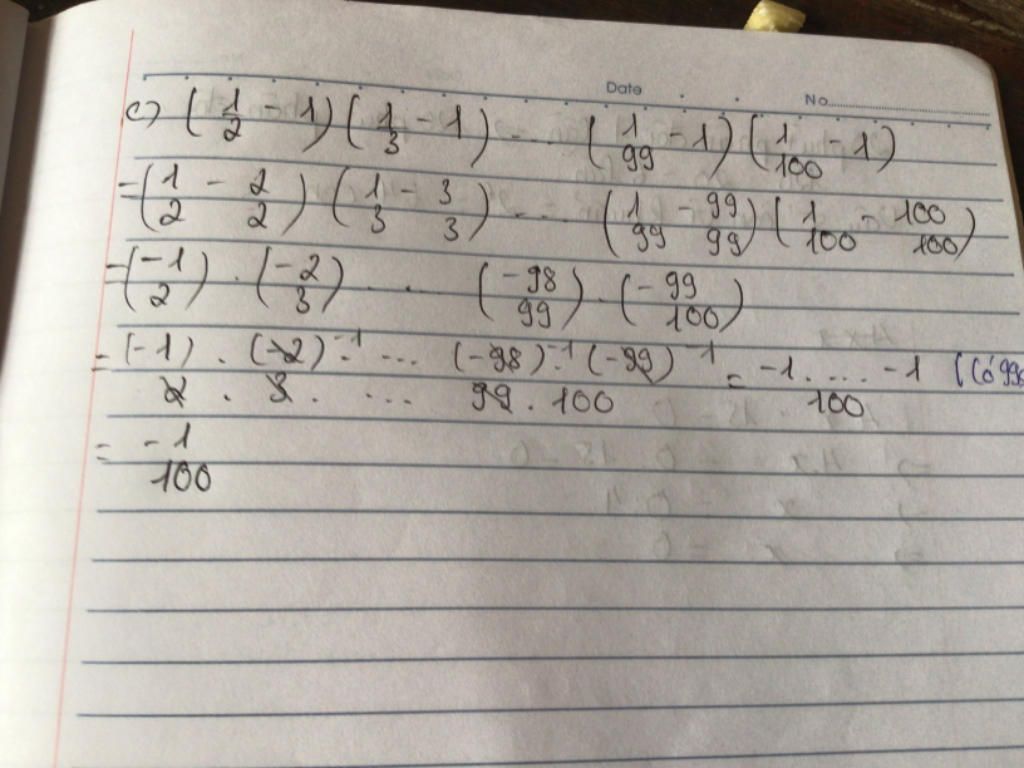 Date No
c) (1/2 - 1) (1/3 - 1) ... (1/99 - 1) (1/100 - 1)
= (1/2 - 2/2) (1/3 - 3/3) ... (1/99 - 99/99) (1/100 - 100/100)
= (-1/2) . (-2/3) . . (-98/99) . (-99/100)
= (-1) . (-2)^-1 . ... (-98)^-1 . (-99)^-1 / 2 . 3 . ... 99 . 100 = -1 . ... -1 / 100 (Có
= -1/100